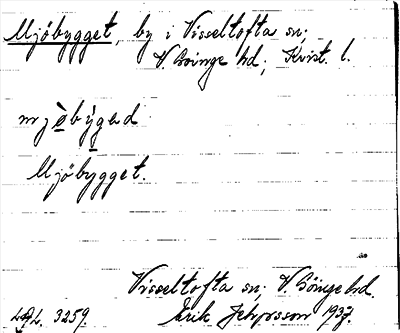 Mjöbygget, by i Visseltofta sn;
V. Göinge hd; Krist. l.
Mjöbygget.
Visseltofta sn, V. Göinge hd.
3259. Erik Jeppsson 1937.